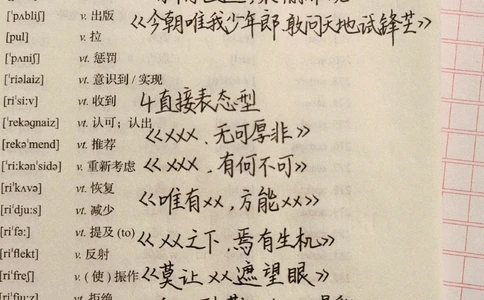 ['pʌbliʃ] v. 出版
《今朝唯我少年郎 敢问天地试锋芒》
[pul] v. 拉
['pʌniʃ] vt. 惩罚
['riəlaiz] vt. 意识到 / 实现
[ri'si:v] vt. 收到
4 直接表态型
['rekəgnaiz] vt. 认可；认出
《xxx，无可厚非》
[rekə'mend] vt. 推荐
['ri:kən'sidə] v. 重新考虑
《xxx，有何不可》
[ri'kʌvə] vt. 恢复
《唯有xx，方能xx》
[ri'dju:s] vt. 减少
[ri'fə:] vt. 提及 (to)
《xx之下，焉有生机》
[ri'flekt] v. 反射
[ri'freʃ] v. ( 使 ) 振作
《莫让xx遮望眼》
[ri'fju:z] vt. 拒绝